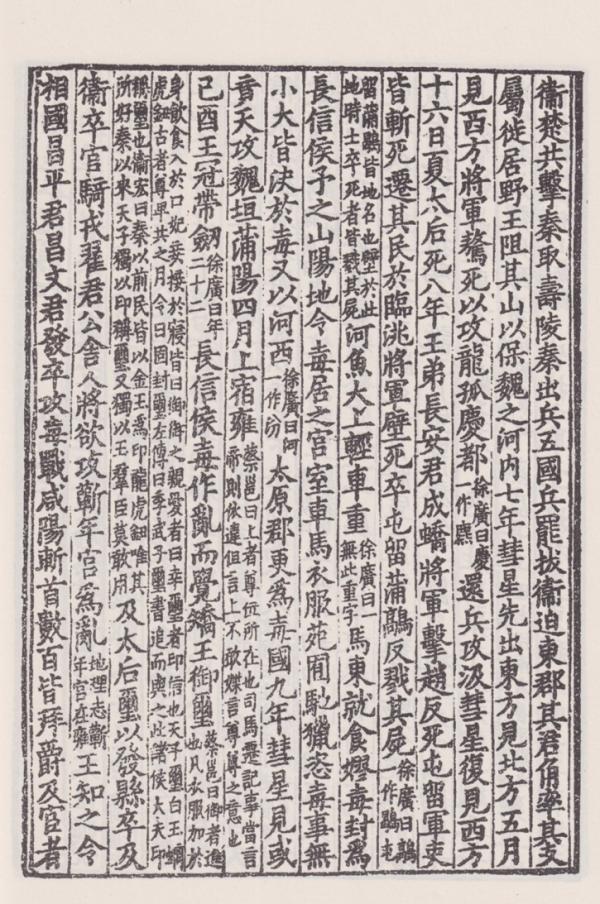 衞楚共擊秦取壽陵秦出兵五國兵罷拔衞迫東郡其君角率其支
屬徙居野王阻其山以保魏之河內七年彗星先出東方見北方五月
見西方將軍驁死以攻龍孤慶都徐廣曰慶一作麃還兵攻汲彗星復見西方
十六日夏太后死八年王弟長安君成蟜將軍擊趙反死屯留軍吏
皆斬死遷其民於臨洮將軍壁死卒屯留蒲鶮反戮其屍徐廣曰鶮一作屯
留蒲鶮皆地名也壁於此地時士卒死者皆戮其屍河魚大上輕車重徐廣曰一無此重字馬東就食嫪毒封爲
長信侯予之山陽地令毒居之宮室車馬衣服苑囿馳獵恣毒事無
小大皆決於毒又以河西徐廣曰河一作汾太原郡更爲毒國九年彗星見或
竟天攻魏垣蒲陽四月上宿雍蔡邕曰上者尊位所在也司馬遷記事當言帝則依違但言上不敢媟言尊尊之意也
己酉王冠帶劒徐廣曰年二十二長信侯毒作亂而覺矯王御璽蔡邕曰御者進也凡衣服加於
身飲食入於口妃妾接於寢皆曰御御之親愛者曰幸璽者印信也天子璽白玉螭虎鈕古者尊卑共之月令曰固封璽左傳曰季武子璽書追而與之此諸侯大夫印
稱璽也衞宏曰秦以前民皆以金玉爲印龍虎鈕唯其所好秦以來天子獨以印稱璽又獨以玉羣臣莫敢用及太后璽以發縣卒及
衞卒官騎戎翟君公舍人將欲攻蘄年宮爲亂地理志蘄年宮在雍王知之令
相國昌平君昌文君發卒攻毒戰咸陽斬首數百皆拜爵及官者